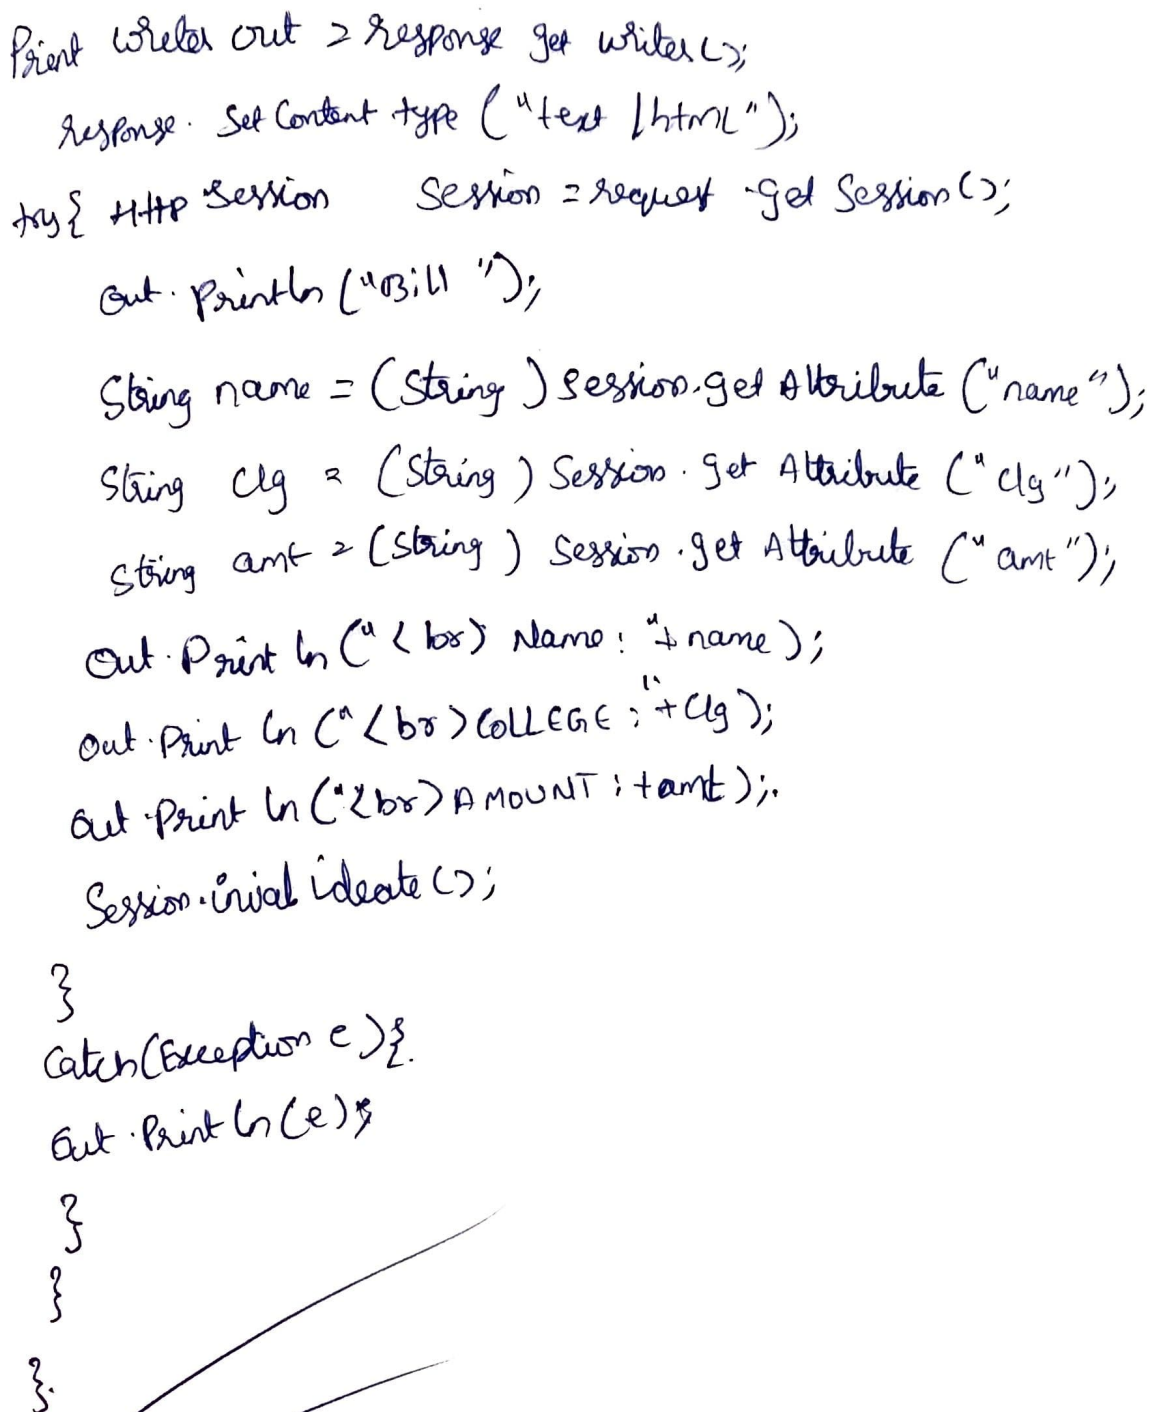 Print writer out = response get writer();
response. Set Content type ("text /html");
try{ HttP Session Session = request .get Session();
Out. Println ("Bill ");
String name = (String ) Session.get Attribute ("name");
String clg = (String ) Session . get Attribute ("clg");
String amt = (String ) Session .get Attribute ("amt");
Out. Print ln ("<br> Name : "+ name );
Out. Print ln ("<br> COLLEGE : "+ clg );
Out .Print ln ("<br> AMOUNT : +amt );.
Session.inval ideate ();
}
Catch(Exception e ){.
Out .Print ln (e);
}
}
}.